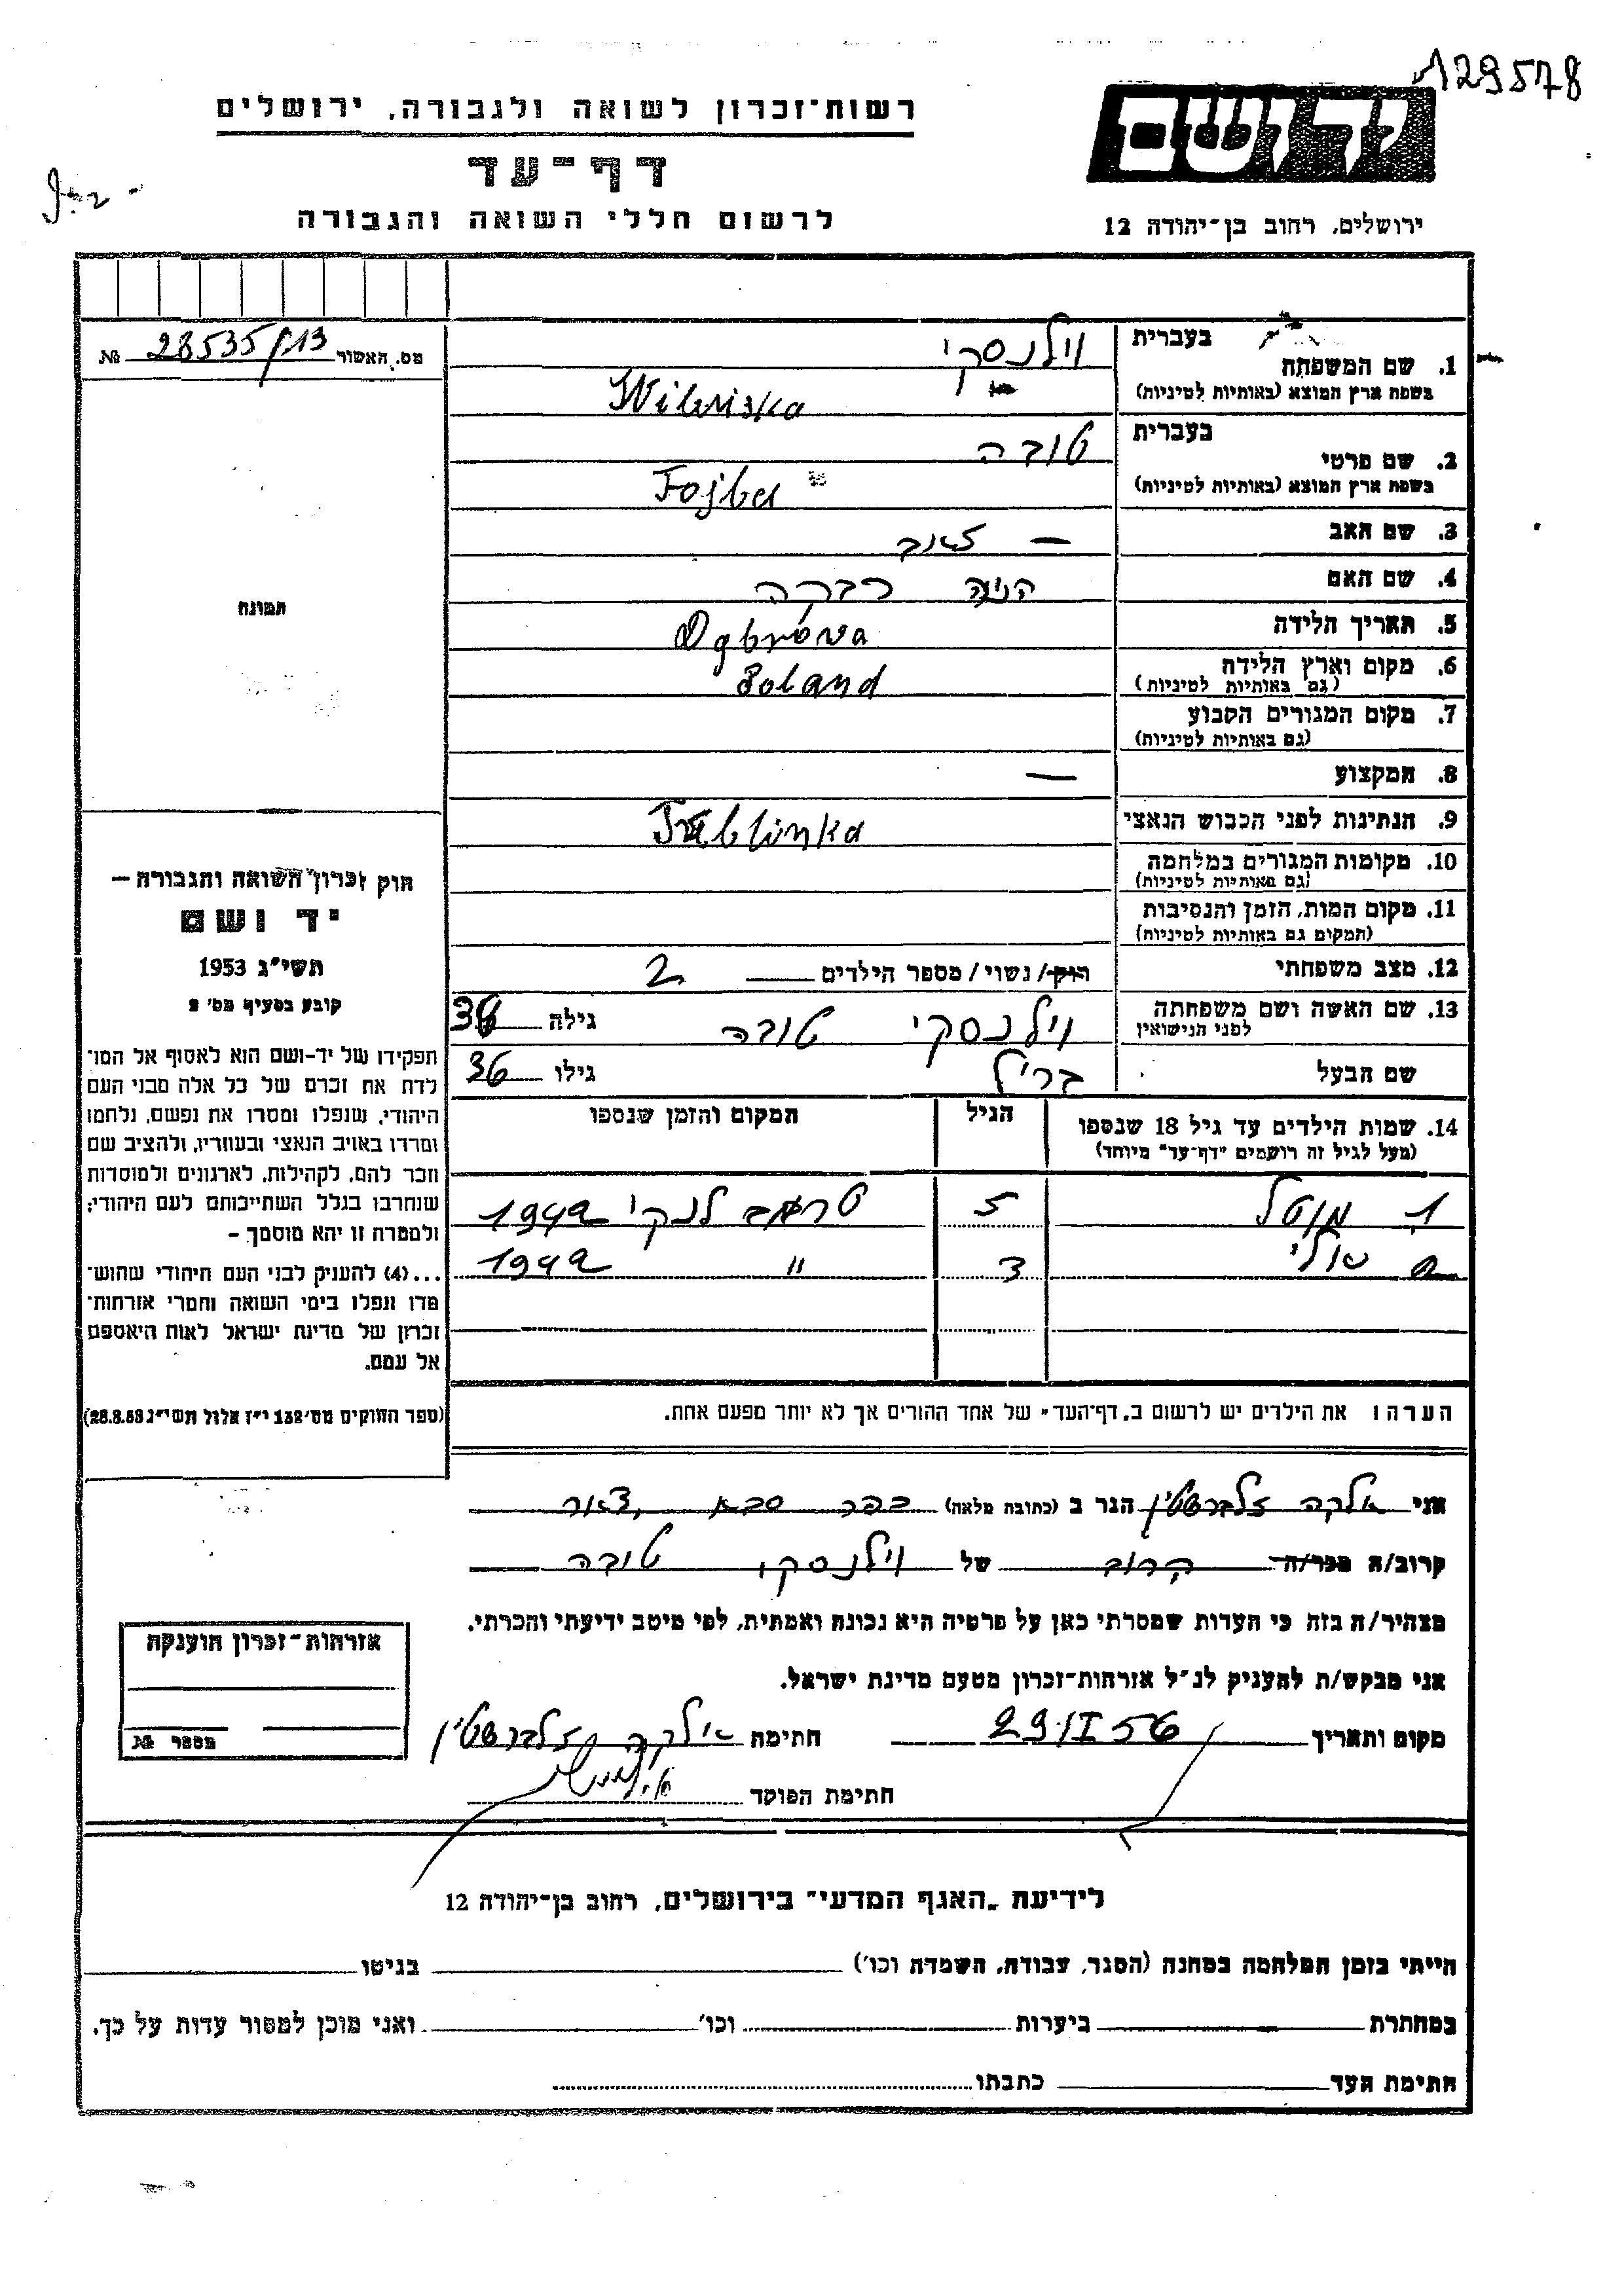 129578
רשות־זכרון לשואה ולגבורה, ירושלים
דף־עד
לרשום חללי השואה והגבורה
יד ושם
ירושלים, רחוב בן־יהודה 12
מס. האשור 28535/13 №
1. שם המשפחה בעברית וילנסקי
בשפת ארץ המוצא (באותיות לטיניות) Wilenska
2. שם פרטי בעברית טובה
בשפת ארץ המוצא (באותיות לטיניות) Tojba
3. שם האב —
4. שם האם רבקה
5. תאריך הלידה Dąbrówa
6. מקום וארץ הלידה (גם באותיות לטיניות) Poland
7. מקום המגורים הקבוע
(גם באותיות לטיניות)
8. המקצוע —
9. הנתינות לפני הכבוש הנאצי Treblinka
10. מקומות המגורים במלחמה
(גם באותיות לטיניות)
11. מקום המות, הזמן והנסיבות
(המקום גם באותיות לטיניות)
12. מצב משפחתי רווק/נשוי/מספר הילדים 2
13. שם האשה ושם משפחתה לפני הנישואין וילנסקי טובה גילה 36
שם הבעל בריל גילו 36
14. שמות הילדים עד גיל 18 שנספו
(מעל לגיל זה רושמים "דף־עד" מיוחד)
הגיל
המקום והזמן שנספו
1 מוטל 5 טרבלנקי 1942
3 " 1942
הערה: את הילדים יש לרשום ב„דף־העד" של אחד ההורים אך לא יותר מפעם אחת.
תמונה
חוק זכרון השואה והגבורה —
יד ושם
תשי"ג 1953
קובע בסעיף מס' 2
תפקידו של יד־ושם הוא לאסוף אל המו־
לדת את זכרם של כל אלה מבני העם
היהודי, שנפלו ומסרו את נפשם, נלחמו
ומרדו באויב הנאצי ובעוזריו, ולהציב שם
וזכר להם, לקהילות, לארגונים ולמוסדות
שנחרבו בגלל השתייכותם לעם היהודי;
ולמטרה זו יהא מוסמך —
...(4) להעניק לבני העם היהודי שהוש־
מדו ונפלו בימי השואה והמרי אזרחות־
זכרון של מדינת ישראל לאות היאספם
אל עמם.
(ספר החוקים מס' 132 י"ז אלול תשי"ג 28.8.53)
אני אלקה זלברשטין הגר ב (כתובת מלאה) כפר סבא
קרוב/ה מכר/ה קרוב של וילנסקי טובה
מצהיר/ה בזה כי העדות שמסרתי כאן על פרטיה היא נכונה ואמתית, לפי מיטב ידיעתי והכרתי.
אני מבקש/ת להעניק לנ"ל אזרחות־זכרון מטעם מדינת ישראל.
מקום ותאריך 29.II 56 חתימה אלקה זלברשטין
חתימת הפוקד
אזרחות־זכרון הוענקה
מספר №
לידיעת „האגף המדעי" בירושלים, רחוב בן־יהודה 12
הייתי בזמן המלחמה במחנה (הסגר, עבודה, השמדה וכו') בגיטו
במחתרת ביערות וכו' ואני מוכן למסור עדות על כך.
חתימת העד כתבתו